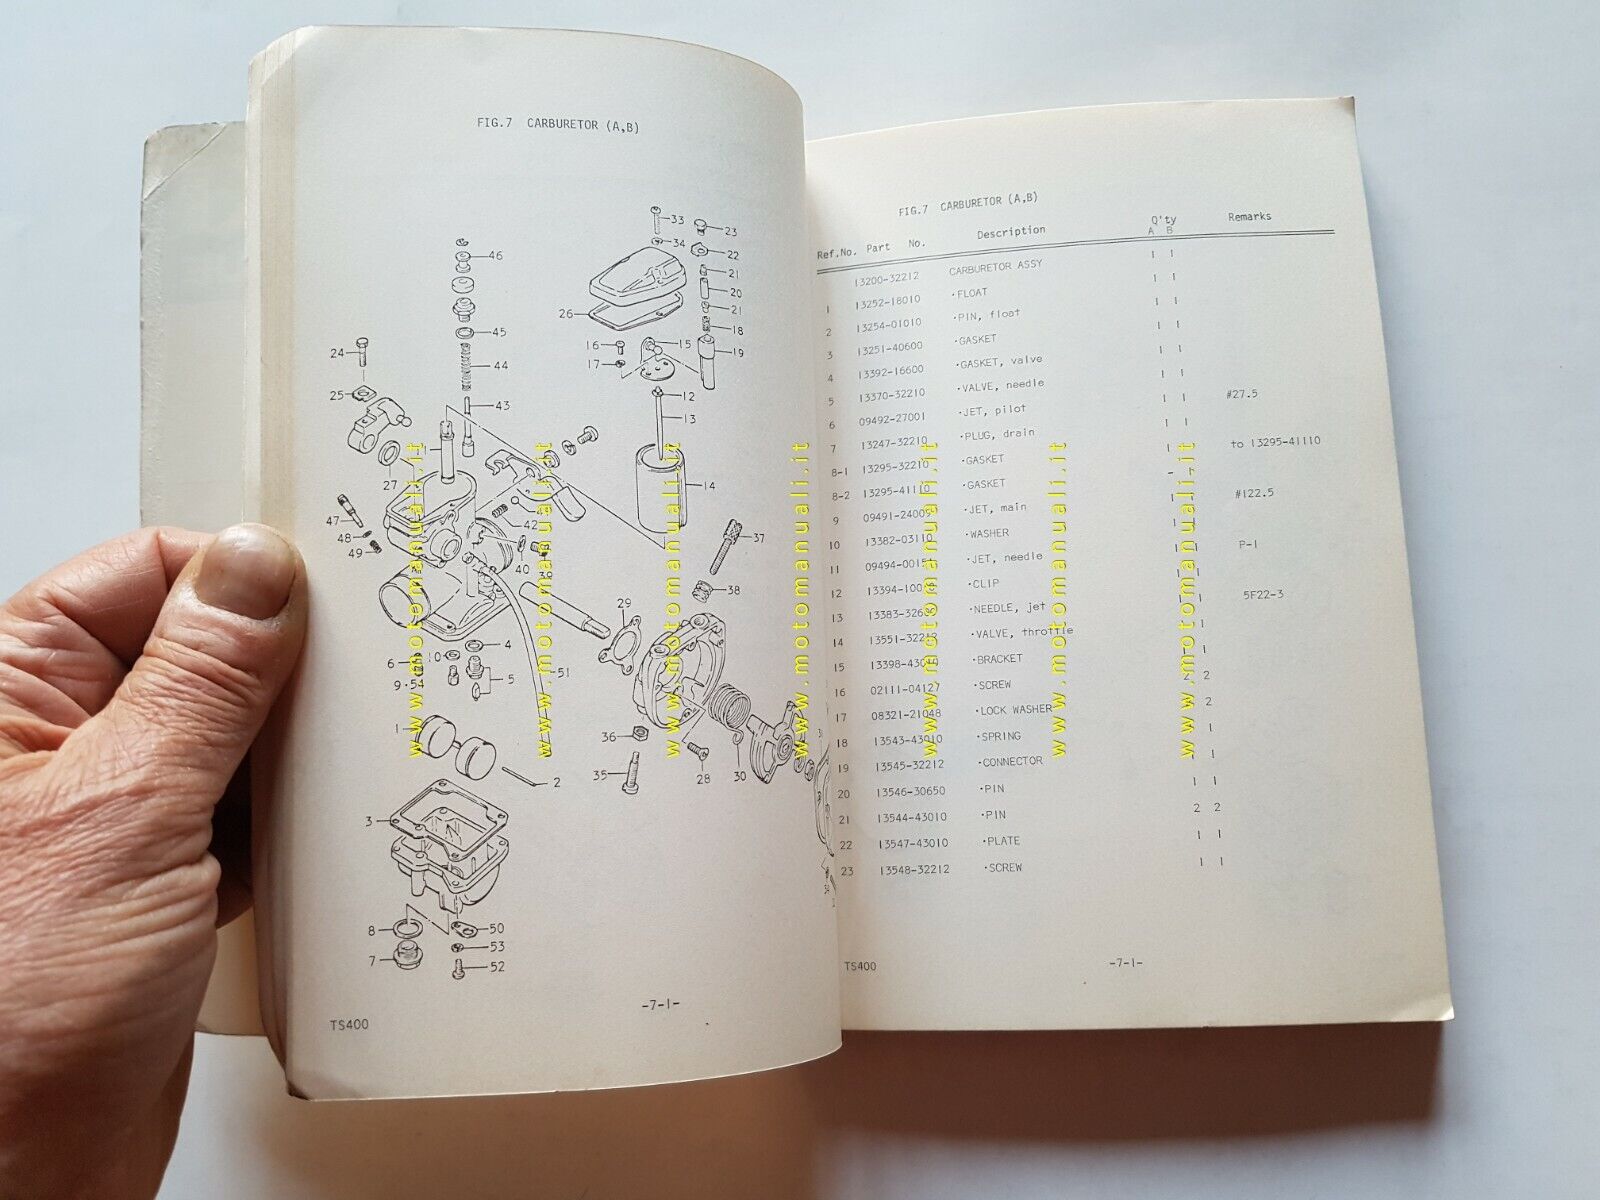 FIG.7 CARBURETOR (A,B)
33
23
34
22
46
21
20
26
21
18
16
15
19
45
24
17
44
25
12
43
13
11
27
14
47
42
41
37
48
49
40
39
38
29
4
6
10
51
5
9·54
1
36
2
35
28
30
3
8
50
53
7
52
-7-1-
TS400
FIG.7 CARBURETOR (A,B)
Ref.No. Part No. Description Q'ty Remarks
A B
13200-32212 CARBURETOR ASSY 1 1
1 13252-18010 ·FLOAT 1 1
2 13254-01010 ·PIN, float 1 1
3 13251-40600 ·GASKET 1 1
4 13392-16600 ·GASKET, valve 1 1
5 13370-32210 ·VALVE, needle 1 1
6 09492-27001 ·JET, pilot 1 1 #27.5
7 13247-32210 ·PLUG, drain 1 1
8-1 13295-32210 ·GASKET 1 to 13295-41110
8-2 13295-41110 ·GASKET
9 09491-24009 ·JET, main #122.5
10 13382-03110 ·WASHER
11 09494-00151 ·JET, needle P-1
12 13394-100 ·CLIP
13 13383-326 ·NEEDLE, jet 5F22-3
14 13551-32212 ·VALVE, throttle
15 13398-43010 ·BRACKET
16 02111-04127 ·SCREW 2 2
17 08321-21048 ·LOCK WASHER 2
18 13543-43010 ·SPRING 1
19 13545-32212 ·CONNECTOR 1 1
20 13546-30650 ·PIN 1 1
21 13544-43010 ·PIN 2 2
22 13547-43010 ·PLATE 1 1
23 13548-32212 ·SCREW 1 1
TS400
-7-1-
www.motomanuali.it
www.motomanuali.it
www.motomanuali.it
www.motomanuali.it
www.motomanuali.it
www.motomanuali.it
www.motomanuali.it